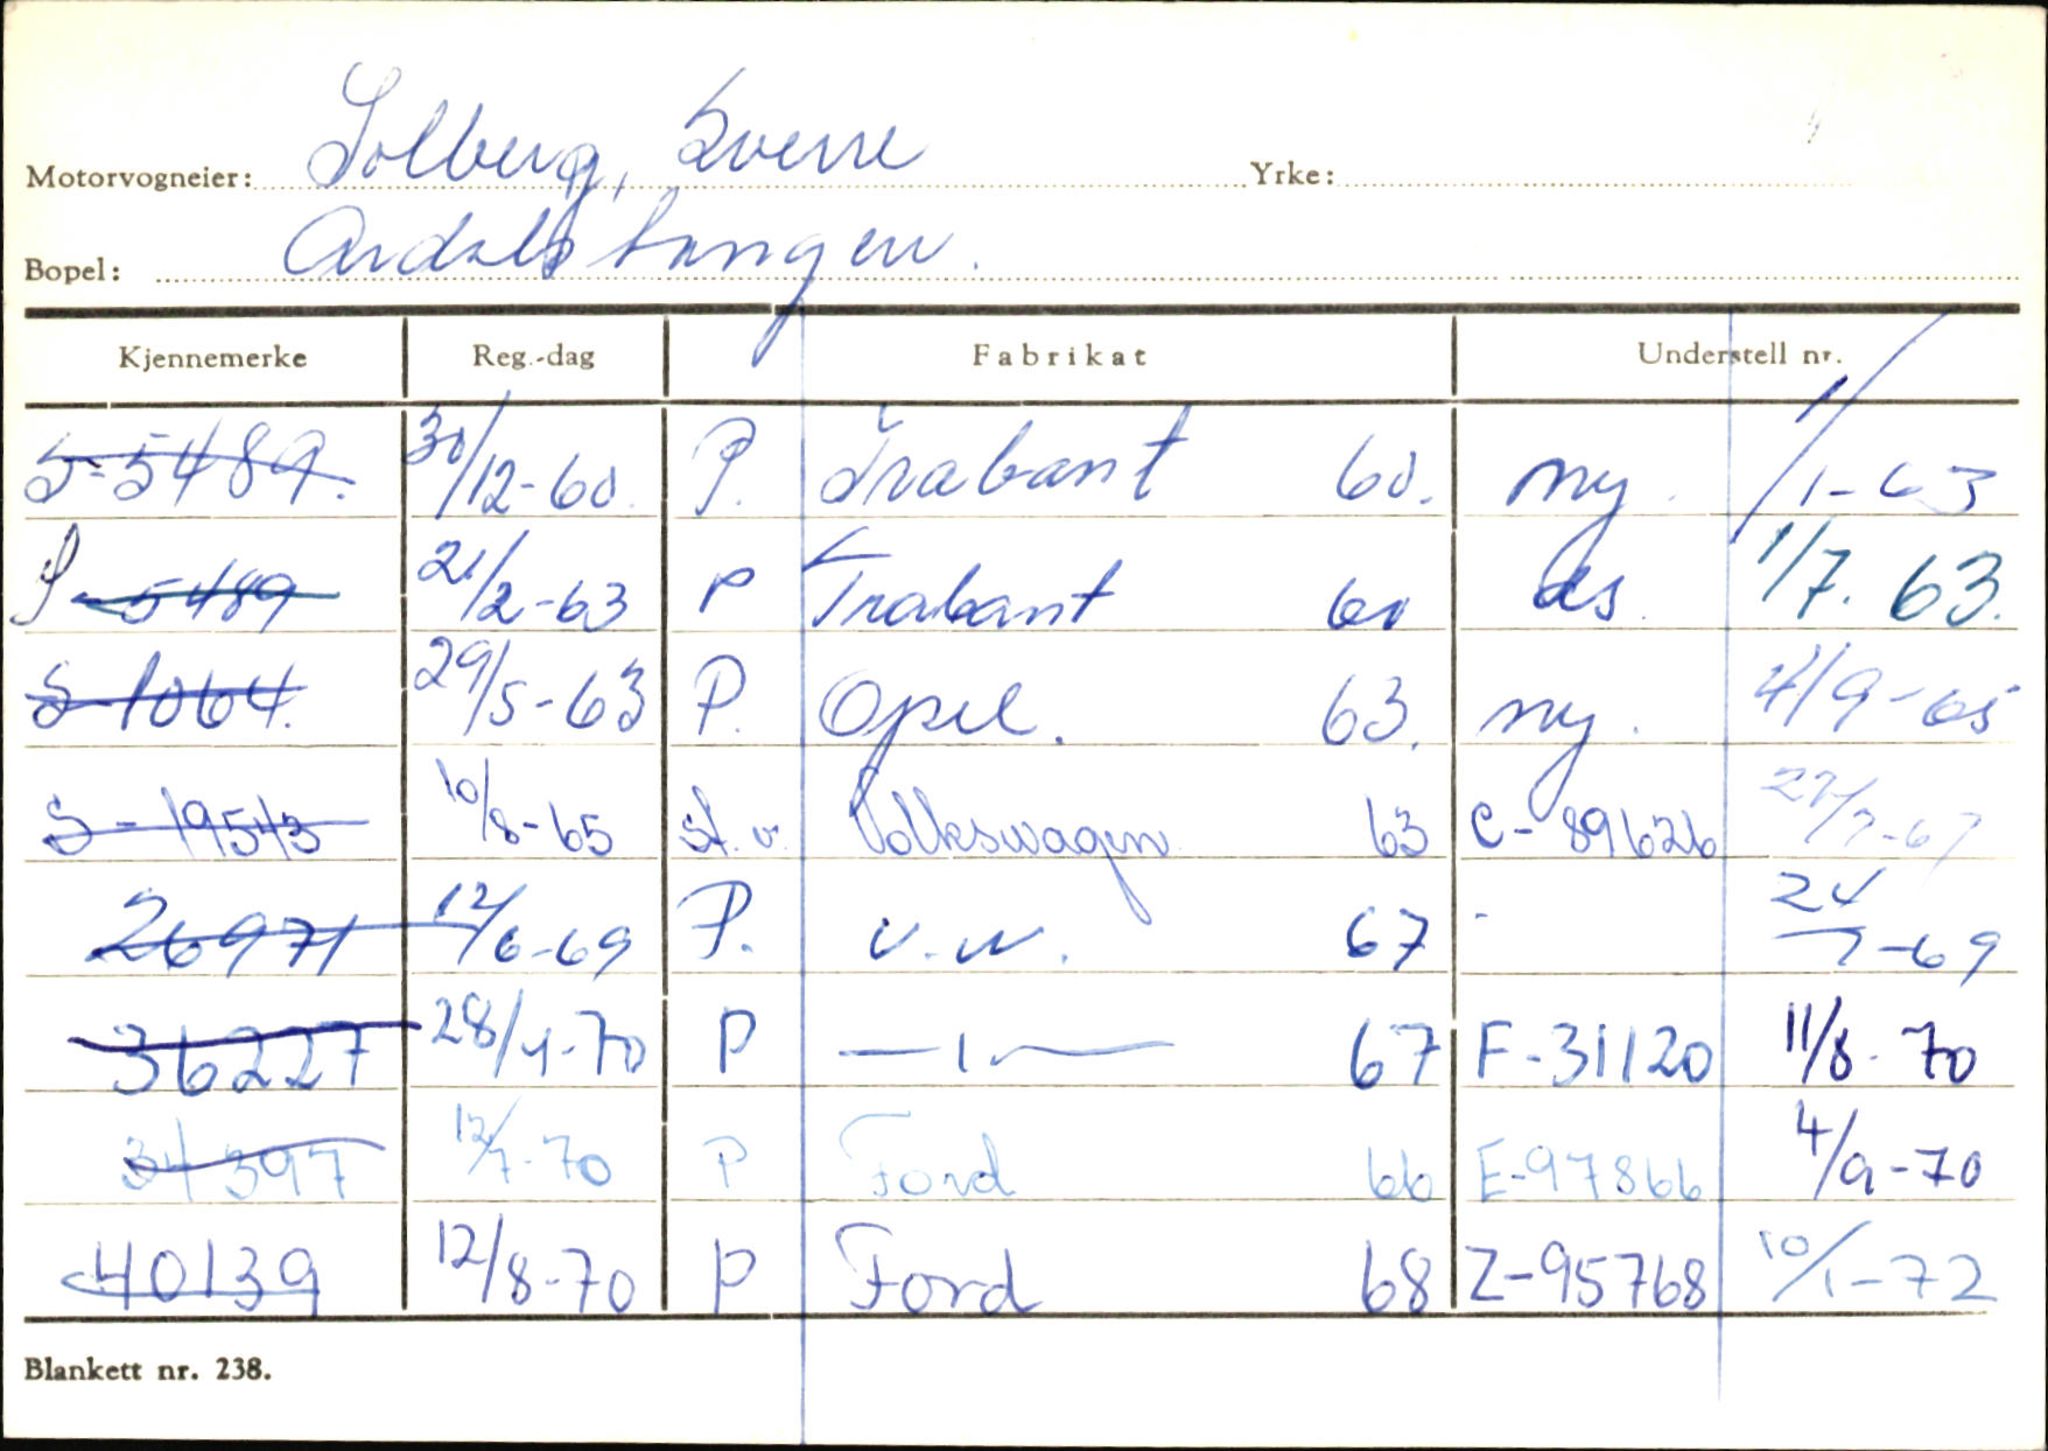 Motorvogneier: Solberg, Sverre Yrke:
Bopel: Ardalstangen.
Kjennemerke Reg.-dag Fabrikat Understell nr.
S-5489. 30/12-60. P. Trabant 60. ny. 1/1-63
S-5489 21/2-63 P Trabant 60 ds. 1/7. 63.
S-1064. 29/5-63 P. Opel. 63. ny. 4/9-65
S-19543 10/8-65 st.v. Volkswagen 63 C-89626 27/7-67
26971 12/6-69 P. v.w. 67 - 24/7-69
36227 28/4-70 P —"— 67 F-31120 11/8-70
34397 12/7-70 P Ford 66 E-97866 4/9-70
40139 12/8-70 P Ford 68 Z-95768 10/1-72
Blankett nr. 238.